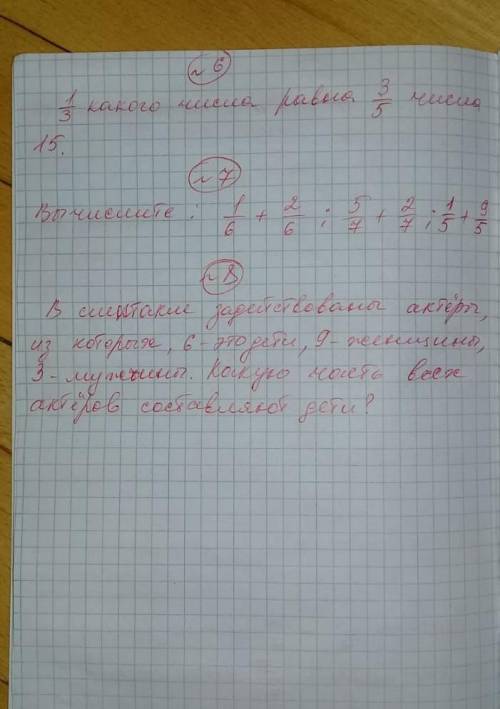 ~6
1/3 какого числа равна 3/5 числа
15.
~7
Вычислите: 1/6 + 2/6; 5/7 + 2/7; 1/5 + 9/5
~8
В спектакле задействованы актёры,
из которых, 6-это дети, 9-женщины,
3-мужчины. Какую часть всех
актёров составляют дети?